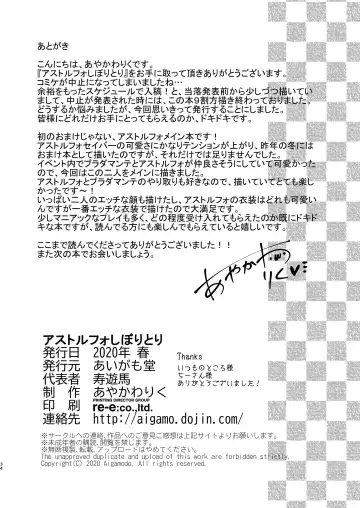 あとがき
こんにちは、あやかわりくです。
『アストルフォしぼりとり』をお手に取って頂きありがとうございます。
コミケが中止になってしまいましたね…
余裕をもったスケジュールで入稿！と、当落発表前から少しづつ描いてい
まして、中止が発表された時には、この本9割方描き終わっておりました。
どうするか悩みましたが、今回思いきって発行することにしました。
皆様にどれだけお手にとってもらえるのか、ドキドキです。
初のおまけじゃない、アストルフォメイン本です！
アストルフォセイバーの可愛さにかなりテンションが上がり、昨年の冬には
おまけ本として描いたのですが、それだけでは足りませんでした。
イベント内でブラダマンテとアストルフォが仲良さそうにしていて可愛かった
ので、今回はこの二人をメインに描きました。
アストルフォとブラダマンテのやり取りも好きなので、描いていてとても楽し
かったです～！
いっぱい二人のエッチな顔も描けたし、アストルフォの衣装はどれも可愛い
んですが一番エッチな衣装で描けたので大満足です。
少しマニアックなプレイも多く、どの程度受け入れてもらえたのか既にドキド
キな本ですが、読んでる方にも楽しんでもらえていると嬉しいです。
ここまで読んでくださってありがとうございました！！
また次の本でお会いしましょう。
あやかわりく♥
アストルフォしぼりとり
発行日 2020年 春
発行元 あいがも堂
代表者 寿遊馬
制 作 あやかわりく
印 刷 PRINTING DIRECTOR GROUP re-e:co.,ltd.
連絡先 http://aigamo.dojin.com/
Thanks
いっちのところ様
ちーさん様
ありがとうございました！
※サークルへの連絡、作品へのご意見ご感想は上記サイトよりお願いします。
※未成年者の購読、閲覧を禁じます。
※無断複製、転載、アップロードはやめてください。
The unapproved duplicate and upload of this work are forbidden strictly.
Copyright(C) 2020 Aigamodo. All rights reserved.
34